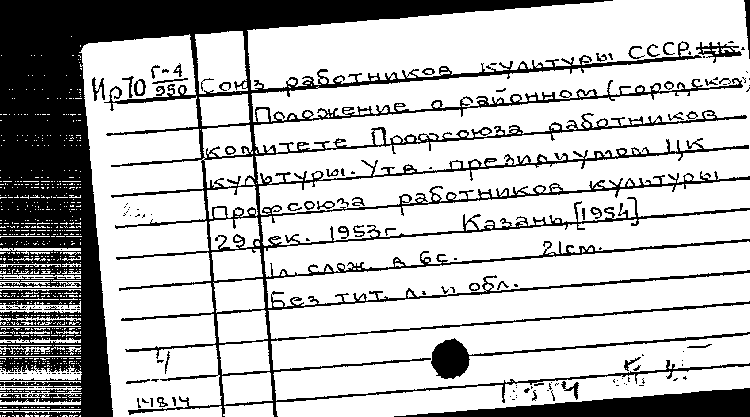 Ир70 Г-4/950 Союз работников культуры СССР. ЦК.
Положение о районном (городском)
комитете Профсоюза работников
культуры. Утв. президиумом ЦК
Профсоюза работников культуры
29 дек. 1953г. Казань, [1954]
1л. слож. в 6с. 21см.
Без тит. л. и обл.
4
14814